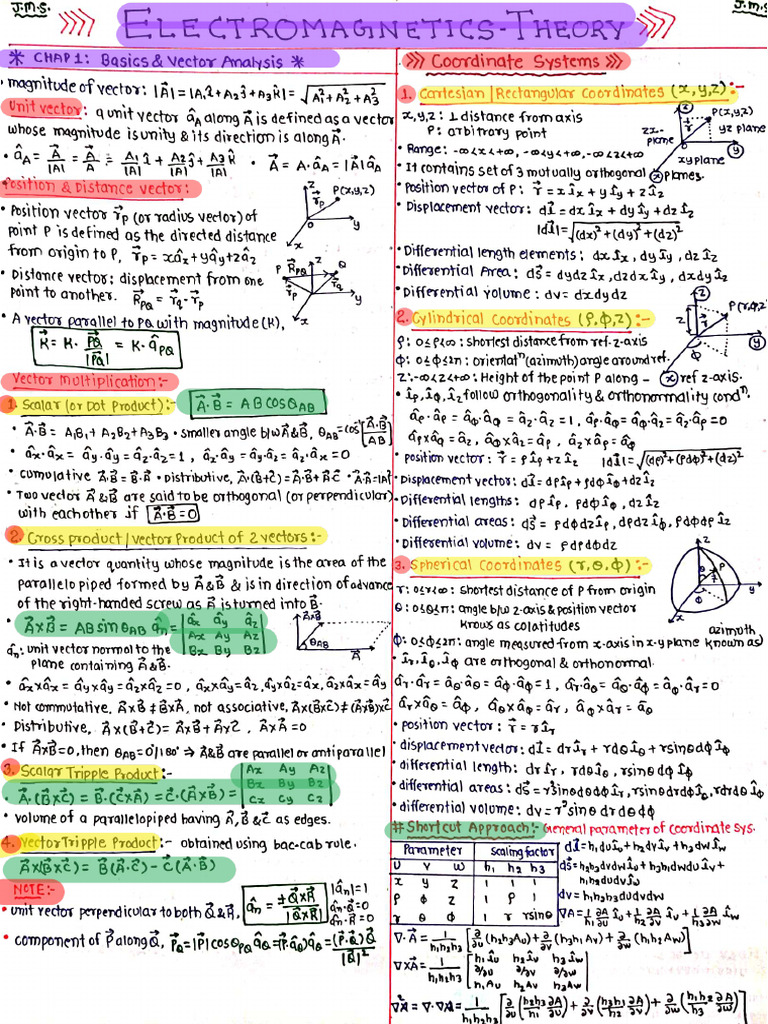 J.M.S.
ELECTROMAGNETICS-THEORY
J.M.S.
* CHAP 1: Basics & Vector Analysis *
• magnitude of vector: |A⃗| = |A₁î+A₂ĵ+A₃k̂| = √(A₁²+A₂²+A₃²)
Unit vector: a unit vector â_A along A⃗ is defined as a vector
whose magnitude is unity & its direction is along A⃗.
• â_A = A⃗/|A⃗| = A⃗/A = A₁/|A| î + A₂/|A| ĵ + A₃/|A| k̂ • A⃗ = A·â_A = |A⃗|â_A
Position & Distance vector:
• Position vector r⃗p (or radius vector) of
point P is defined as the directed distance
from origin to P, r⃗p = xâx+yây+zâz
z P(x,y,z) r⃗p o y x
• Distance vector: displacement from one
point to another. R⃗PQ = r⃗q - r⃗p
P R⃗PQ z Q r⃗p y x
• A vector parallel to PQ with magnitude (K),
K⃗ = K· PQ⃗/|PQ⃗| = K·âPQ
Vector multiplication:-
1. Scalar (or Dot Product):- A⃗·B⃗ = AB cosθAB
• A⃗·B⃗ = A₁B₁+A₂B₂+A₃B₃ • smaller angle b/w A⃗&B⃗, θAB = cos⁻¹[A⃗·B⃗/AB]
• âx·âx = ây·ây = âz·âz = 1 , âx·ây = ây·âz = âz·âx = 0
• cumulative A⃗·B⃗ = B⃗·A⃗ • Distributive, A⃗·(B⃗+C⃗) = A⃗·B⃗+A⃗·C⃗ • A⃗·A⃗=|A|²
• Two vector A⃗ & B⃗ are said to be orthogonal (or perpendicular)
with each other if A⃗·B⃗=0
2. Cross product/vector Product of 2 vectors:-
• It is a vector quantity whose magnitude is the area of the
parallelo piped formed by A⃗ & B⃗ & is in direction of advance
of the right-handed screw as A⃗ is turned into B⃗.
• A⃗×B⃗ = AB sinθAB ân = |âx ây âz|
|Ax Ay Az|
|Bx By Bz|
A⃗×B⃗ θAB A⃗
ân: unit vector normal to the
plane containing A⃗ & B⃗.
• âx×âx = ây×ây = âz×âz = 0 , âx×ây = âz, ây×âz = âx, âz×âx = ây
• Not commutative, A⃗×B⃗ ≠ B⃗×A⃗, not associative, A⃗×(B⃗×C⃗) ≠ (A⃗×B⃗)×C⃗
• Distributive, A⃗×(B⃗+C⃗) = A⃗×B⃗ + A⃗×C⃗ , A⃗×A⃗ = 0
• If A⃗×B⃗=0, then θAB = 0°/180° ⇒ A⃗&B⃗ are parallel or antiparallel
3. Scalar Tripple Product:-
• A⃗·(B⃗×C⃗) = B⃗·(C⃗×A⃗) = C⃗·(A⃗×B⃗) = |Ax Ay Az|
|Bx By Bz|
|Cx Cy Cz|
• volume of a parallelopiped having A⃗,B⃗ & C⃗ as edges.
4. Vector Tripple Product:- obtained using bac-cab rule.
A⃗×(B⃗×C⃗) = B⃗(A⃗·C⃗) - C⃗(A⃗·B⃗)
NOTE:-
• unit vector perpendicular to both Q⃗ & R⃗, ân = ±Q⃗×R⃗/|Q⃗×R⃗|
|ân|=1
ân·Q⃗=0
ân·R⃗=0
• component of P⃗ along Q⃗, P⃗Q = |P⃗|cosθPQ âQ = (P⃗·âQ)âQ = (P⃗·Q⃗)Q⃗/|Q⃗|²
Coordinate Systems
1. Cartesian/Rectangular Coordinates (x,y,z):-
x,y,z: ⊥ distance from axis
P: arbitrary point
z P(x,y,z) zx-plane yz plane r⃗ xy plane y x
• Range: -∞<x<+∞, -∞<y<+∞, -∞<z<+∞
• It contains set of 3 mutually orthogonal planes.
• Position vector of P: r⃗ = xîx + yîy + zîz
• Displacement vector: dl⃗ = dxîx + dyîy + dzîz
|dl⃗| = √((dx)²+(dy)²+(dz)²)
• Differential length elements: dxîx, dyîy, dzîz
• Differential Area: ds⃗ = dydzîx, dzdxîy, dxdyîz
• Differential volume: dv = dxdydz
2. Cylindrical Coordinates (ρ,ϕ,z):-
z P(r,ϕ,z) z r⃗ y ϕ x
ρ: 0≤ρ<∞: shortest distance from ref. z-axis
ϕ: 0≤ϕ≤2π: orientatⁿ (azimuth) angle around ref.
z: -∞<z<+∞: Height of the point P along ref z-axis.
• îρ, îϕ, îz follow orthogonality & orthonormality condⁿ.
âρ·âρ = âϕ·âϕ = âz·âz = 1, âρ·âϕ = âϕ·âz = âz·âρ = 0
âρ×âϕ = âz, âϕ×âz = âρ, âz×âρ = âϕ
• position vector: r⃗ = ρîρ + zîz |dl⃗| = √((dρ)²+(ρdϕ)²+(dz)²)
• Displacement vector: dl⃗ = dρîρ + ρdϕîϕ + dzîz
• Differential lengths: dρîρ, ρdϕîϕ, dzîz
• Differential areas: ds⃗ = ρdϕdzîρ, dρdzîϕ, ρdϕdρîz
• Differential volume: dv = ρdρdϕdz
3. Spherical Coordinates (r,θ,ϕ):-
z P θ r⃗ y ϕ x
r: 0≤r<∞: shortest distance of P from origin
θ: 0≤θ≤π: angle b/w z-axis & position vector
knows as colatitudes
ϕ: 0≤ϕ≤2π: angle measured from x-axis in x-y plane known as azimuth)
• îr, îθ, îϕ are orthogonal & orthonormal.
âr·âr = âθ·âθ = âϕ·âϕ = 1, âr·âθ = âθ·âϕ = âϕ·âr = 0
âr×âθ = âϕ, âθ×âϕ = âr, âϕ×âr = âθ
• position vector: r⃗ = rîr
• displacement vector: dl⃗ = drîr + rdθîθ + rsinθdϕîϕ
• differential length: drîr, rdθîθ, rsinθdϕîϕ
• differential areas: ds⃗ = r²sinθdθdϕîr, rsinθdrdϕîθ, rdrdθîϕ
• differential volume: dv = r²sinθ dr dθ dϕ
# Shortcut Approach:- General parameter of coordinate sys.
Parameter Scaling factor
U V W h₁ h₂ h₃
x y z 1 1 1
ρ ϕ z 1 ρ 1
r θ ϕ 1 r rsinθ
dl⃗ = h₁duîu + h₂dvîv + h₃dwîw
ds⃗ = h₂h₃dvdwîu + h₃h₁dwduîv +
h₁h₂dudvîw
dv = h₁h₂h₃dudvdw
∇A = 1/h₁ ∂A/∂u îu + 1/h₂ ∂A/∂v îv + 1/h₃ ∂A/∂w îw
∇·A⃗ = 1/h₁h₂h₃ [∂/∂u(h₂h₃Au) + ∂/∂v(h₃h₁Av) + ∂/∂w(h₁h₂Aw)]
∇×A⃗ = 1/h₁h₂h₃ |h₁îu h₂îv h₃îw|
|∂/∂u ∂/∂v ∂/∂w|
|h₁Au h₂Av h₃Aw|
∇²A = ∇·∇A = 1/h₁h₂h₃ [∂/∂u(h₂h₃/h₁ ∂A/∂u) + ∂/∂v(h₃h₁/h₂ ∂A/∂v) + ∂/∂w(h₁h₂/h₃ ∂A/∂w)]